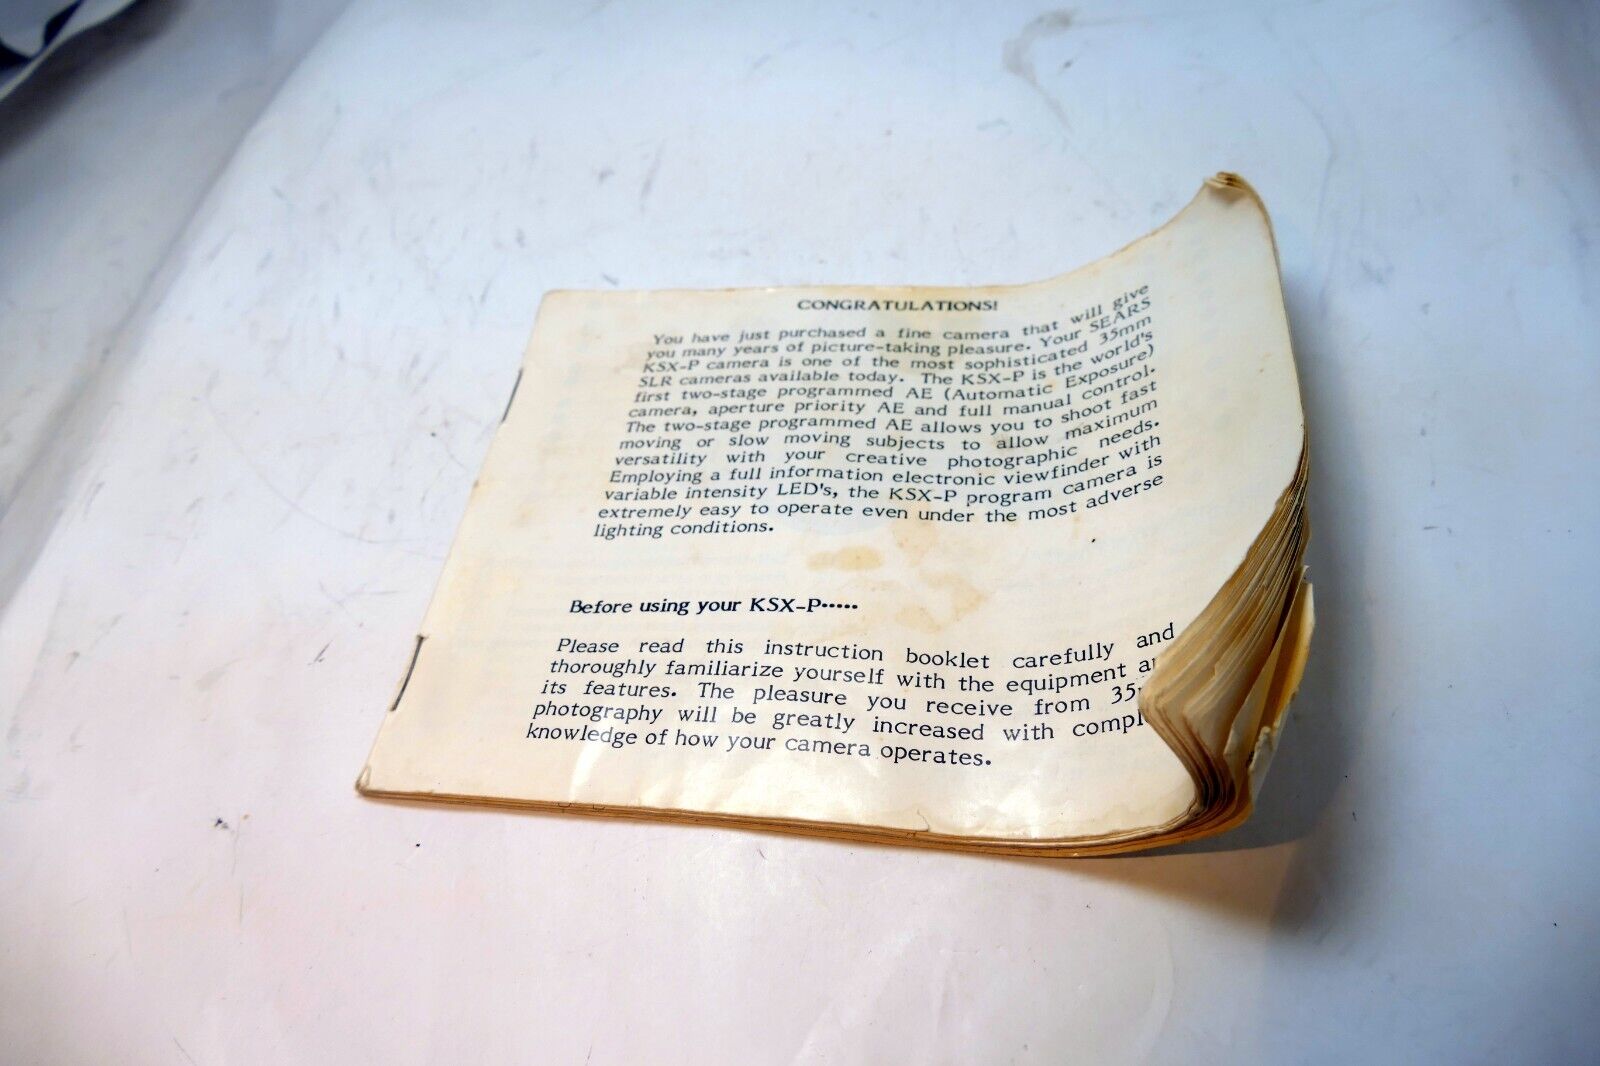 CONGRATULATIONS!
You have just purchased a fine camera that will give
you many years of picture-taking pleasure. Your SEARS
KSX-P camera is one of the most sophisticated 35mm
SLR cameras available today. The KSX-P is the world's
first two-stage programmed AE (Automatic Exposure)
camera, aperture priority AE and full manual control.
The two-stage programmed AE allows you to shoot fast
moving or slow moving subjects to allow maximum
versatility with your creative photographic needs.
Employing a full information electronic viewfinder with
variable intensity LED's, the KSX-P program camera is
extremely easy to operate even under the most adverse
lighting conditions.
Before using your KSX-P•••••
Please read this instruction booklet carefully and
thoroughly familiarize yourself with the equipment
its features. The pleasure you receive from
photography will be greatly increased with
knowledge of how your camera operates.